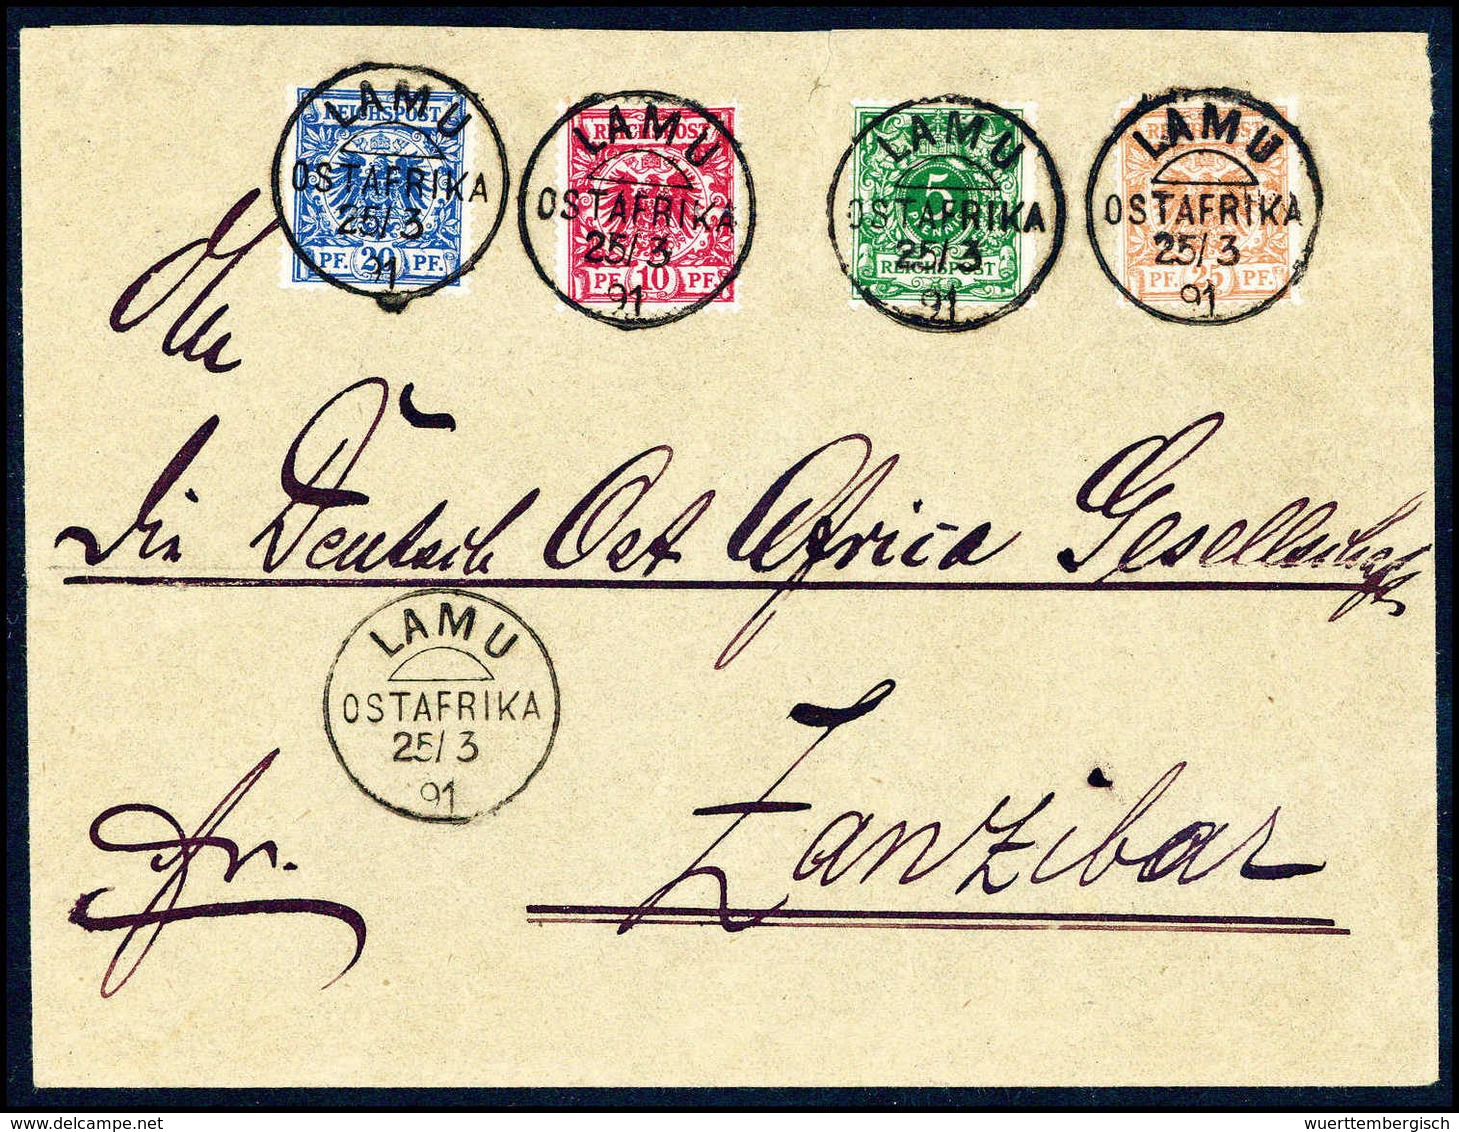 LAMU
OSTAFRIKA
25/3
91
REICHSPOST
PF. 20 PF.
LAMU
OSTAFRIKA
25/3
91
REICHSPOST
PF. 10 PF.
LAMU
OSTAFRIKA
25/3
91
5
REICHSPOST
LAMU
OSTAFRIKA
25/3
91
PF. 25 PF.
An
die Deutsch Ost Africa Gesellschaft
LAMU
OSTAFRIKA
25/3
91
fr.
Zanzibar
delcampe.net
wuerttembergisch